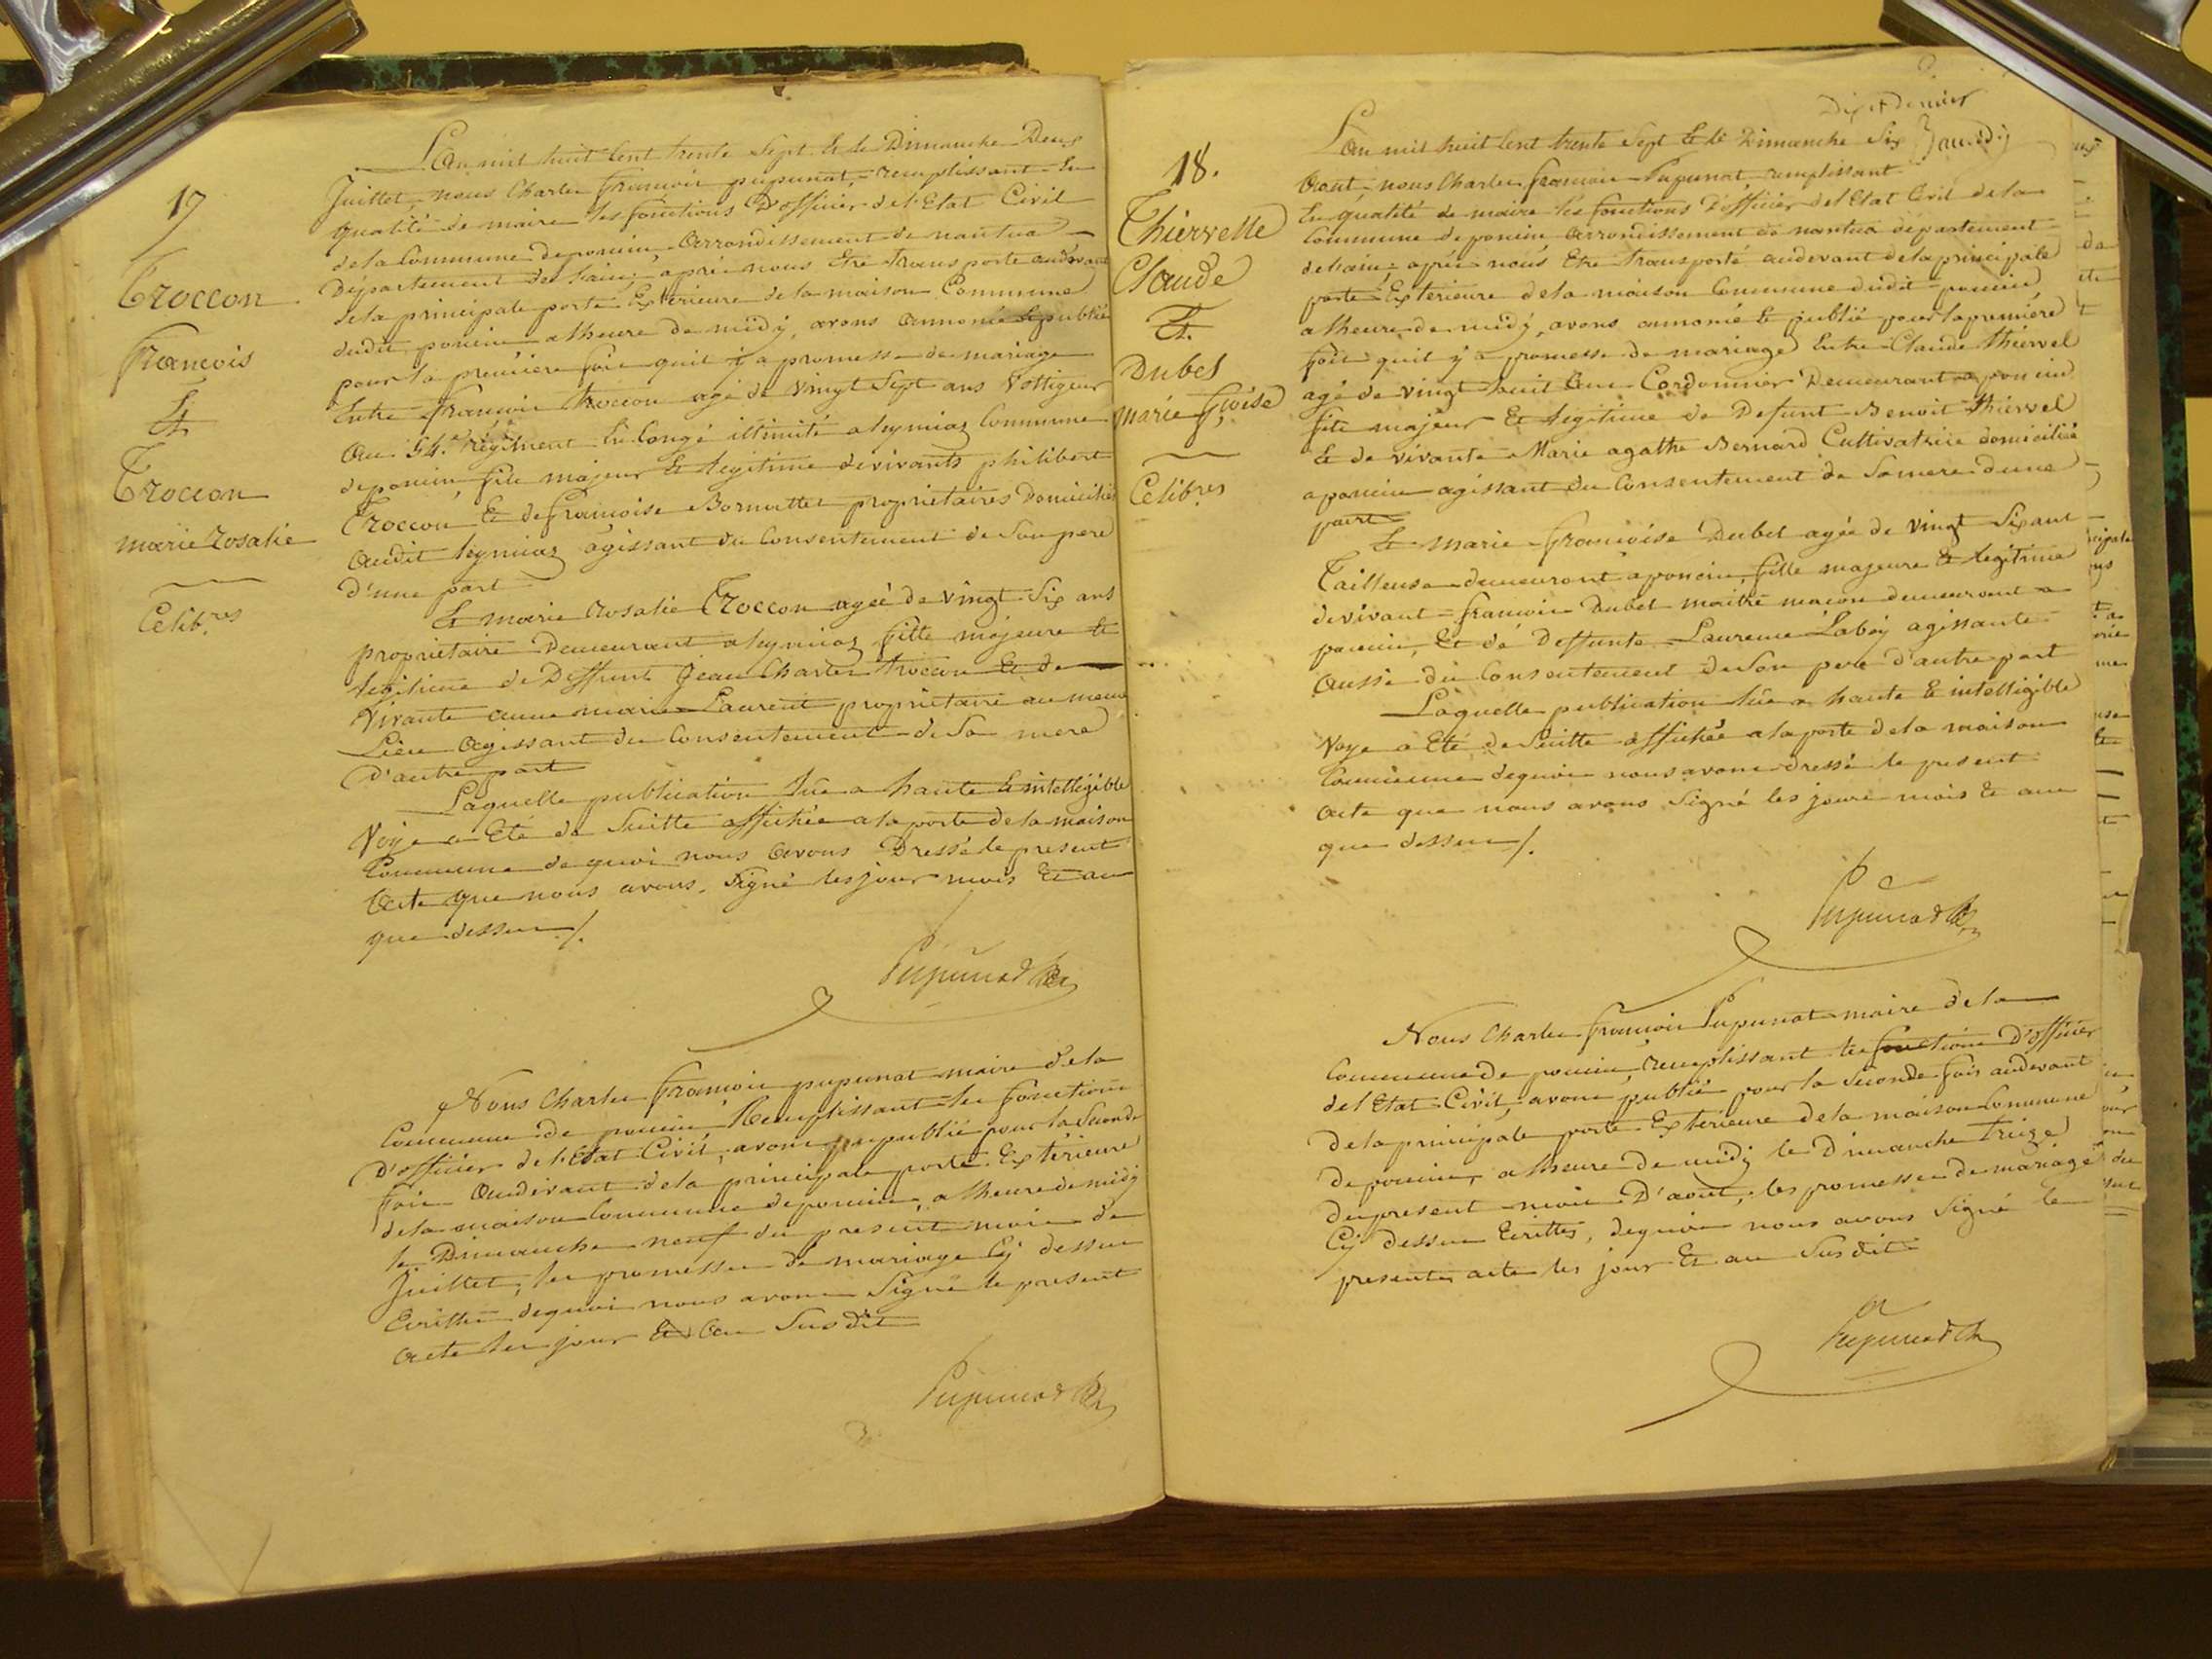 17
Troccon
François
Et
Troccon
marie Rosalie
Celib.res
L'an mil huit Cent trente Sept Et le Dimanche Deux
Juillet, nous Charles François pupunat, remplissant En
qualité de maire les fonctions D'officier de l'Etat Civil
de la Commune de poncin, Arrondissement de nantua
Département de l'ain; après nous Etre transporté audevant
de la principale porte Extérieure de la maison Commune
dudit poncin a lheure de midy, avons annoncé Et publié
pour la première fois quil y a promesse de mariage
Entre François Troccon agé de vingt Sept ans Voltigeur
Au 54.e régiment En Congé illimité a leymiaz Commune
de poncin, fils majeur Et legitime de vivants philibert
Troccon Et de Francoise Bornattet propriétaires Domiciliés
Audit leymiaz agissant du Consentement de Son pere
D'une part
Et marie Rosalie Troccon agée de vingt Six ans
propriétaire Demeurant a leymiaz fille majeure Et
legitime de Deffunt Jean Charles Troccon Et de
Vivante anne marie Laurent propriétaire au meme
Lieu Agissant du Consentement de Sa mere
D'autre part
Laquelle publication lue a haute Et intelligible
Voye a Eté de Suitte affichée a la porte de la maison
Commune de quoi nous avons Dressé le present
Acte que nous avons Signé les jour mois Et an
que dessus ./.
Pupunat
Nous Charles François pupunat maire de la
Commune de poncin Remplissant les fonctions
D'officier de l'Etat Civil, avons publié pour la Seconde
fois Audevant de la principale porte Extérieure
de la maison Commune de poncin, a lheure de midy
le Dimanche neuf du present mois de
Juillet, les promesses de mariage Cy dessus
Ecrittes dequoi nous avons Signé le present
Acte les jour Et An Susdit
Pupunat
18.
Thiervelle
Claude
Et
Dubet
marie f.çoise
Celib.res
L'an mil huit Cent trente Sept Et le Dimanche Six
Aout nous Charles francois Pupunat, remplissant
En qualité de maire les fonctions D'officier de l'Etat Civil de la
Commune de poncin Arrondissement de nantua département
de l'ain; après nous Etre transporté audevant de la principale
porte Extérieure de la maison Commune dudit poncin
a lheure de midy, avons annoncé Et publié pour la première
fois quil y a promesse de mariage Entre Claude thiervel
agé de vingt huit ans Cordonnier Demeurant a poncin
fils majeur Et legitime de Defunt Benoit thiervel
Et de vivante Marie agathe Bernard Cultivatrice domiciliée
a poncin agissant du Consentement de Sa mere d'une
part
Et marie Françoise Dubet agée de vingt Six ans
Tailleuse demeurant a poncin, fille majeure Et legitime
de vivant françois Dubet maitre maçon demeurant a
poncin, Et de Deffunte Laurence Laboy agissante
Aussi du Consentement de Son pere d'autre part
Laquelle publication lue a haute Et intelligible
Voye a Eté de Suitte affichée a la porte de la maison
Commune dequoi nous avons dressé le present
Acte que nous avons Signé les jours mois Et an
que dessus ./.
Pupunat
Nous Charles françois Pupunat maire de la
Commune de poncin, remplissant les fonctions D'officier
de l'Etat Civil, avons publié pour la Seconde fois audevant
de la principale porte Extérieure de la maison Commune
de poncin, a lheure de midy le Dimanche Treize
du present mois D'aout, les promesses de mariage
Cy dessus Ecrittes, dequoi nous avons Signé le
present acte les jour Et an Susdit
Pupunat